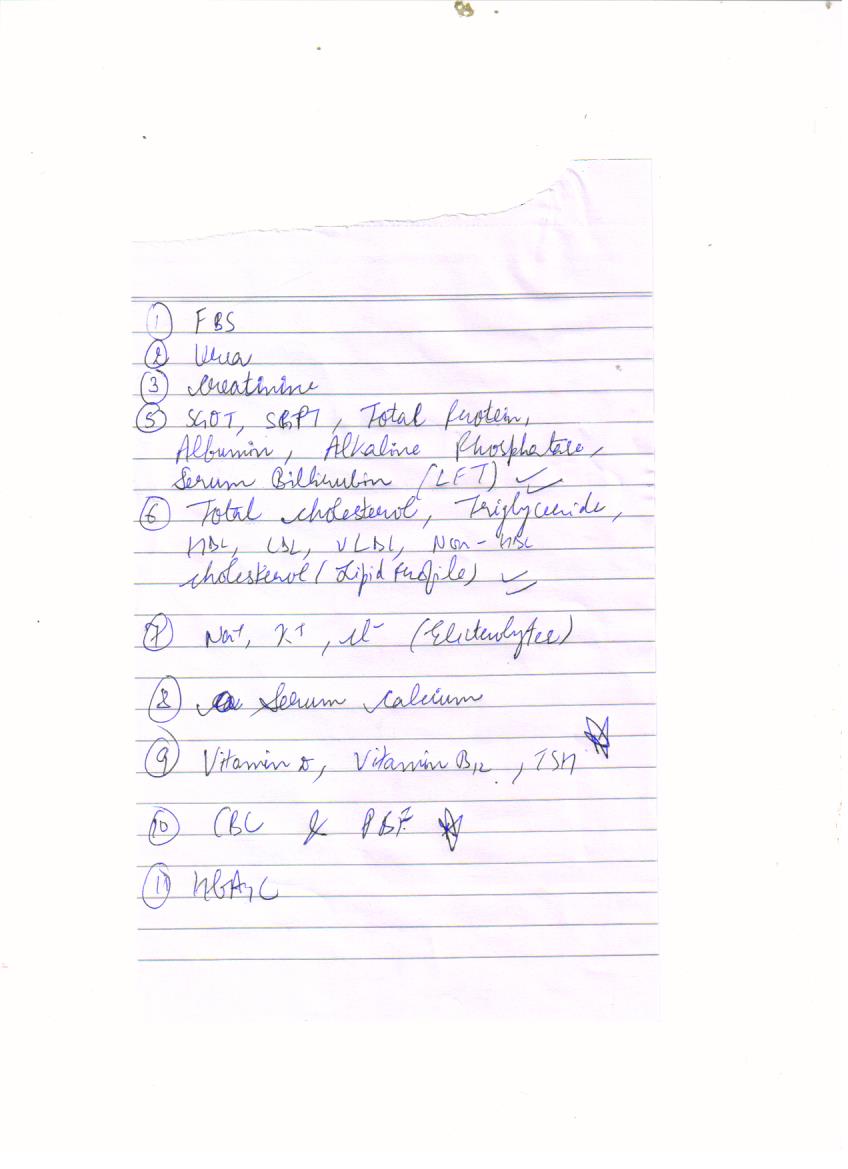 ① FBS
② Urea
③ Creatinine
⑤ SGOT, SGPT, Total Protein,
Albumin, Alkaline Phosphatase,
Serum Billirubin (LFT) ✓
⑥ Total cholesterol, Triglyceride,
HDL, LDL, VLDL, Non-HDL
cholesterol (Lipid Profile) ✓
⑦ Na+, K+, Cl- (Electrolytes)
⑧ Serum Calcium
⑨ Vitamin D, Vitamin B12, TSH
⑩ CBC & PBF
⑪ HbA1C